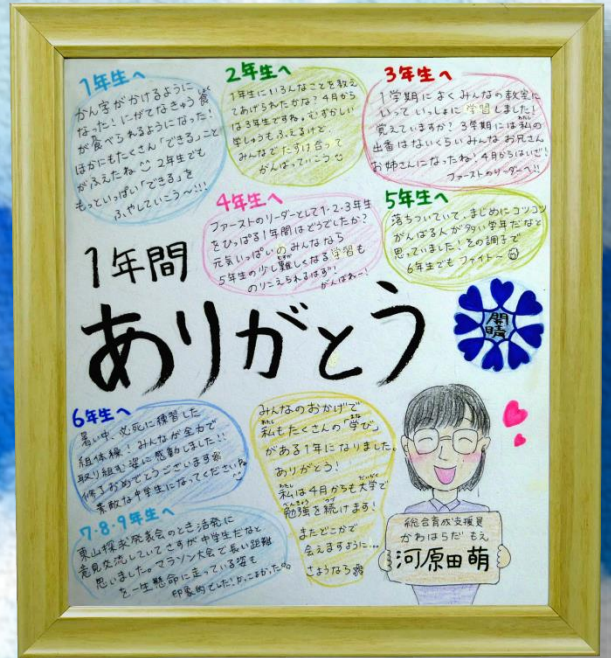 1年生へ
かん字がかけるように
なった！にがてなきゅう食
が食べられるようになった！
ほかにもたくさん「できる」こと
がふえたね^^ 2年生でも
もっといっぱい「できる」を
ふやしていこう～!!!
2年生へ
1年生にいろんなことを教え
てあげられたかな？4月から
は3年生ですね。むずかしい
学しゅうもふえるけど、
みんなでたすけ合って
がんばっていこう
3年生へ
1学期によくみんなの教室に
いっていっしょに学習しました！
覚えていますか？3学期には私の
出番はないくらいみんなお兄さん
お姉さんになったね！4月からはいざ！
ファーストのリーダーへ!!
4年生へ
ファーストのリーダーとして1・2・3年生
をひっぱる1年間はどうでしたか？
元気いっぱいのみんななら
5年生の少し難しくなる学習も
のりこえられるはず!!
がんばれー！
5年生へ
落ちついていて、まじめにコツコツ
がんばる人が多い学年だなと
思っていました！その調子で
6年生でもファイト～
1年間
ありがとう
開晴
6年生へ
暑い中、必死に練習した
組体操！みんなが全力で
取り組む姿に感動しました!!
修了おめでとうございます
素敵な中学生になってくださいね。
7・8・9年生へ
東山探求発表会のとき活発に
意見交流していてさすが中学生だなと
思いました。マラソン大会で長い距離
を一生懸命に走っている姿も
印象的でした！かっこよかった。
みんなのおかげで
私もたくさんの「学び」
がある1年になりました。
ありがとう！
私は4月からも大学で
勉強を続けます！
またどこかで
会えますように…
さようなら
総合育成支援員
かわはらだ もえ
河原田萌